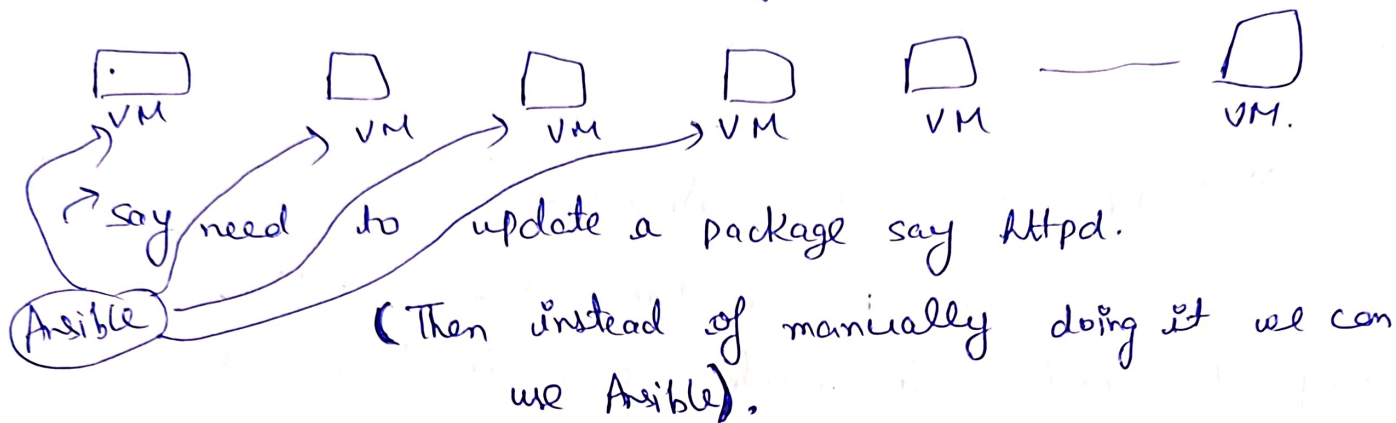 VM VM VM VM VM VM.
say need to update a package say httpd.
Ansible (Then instead of manually doing it we can
use Ansible).